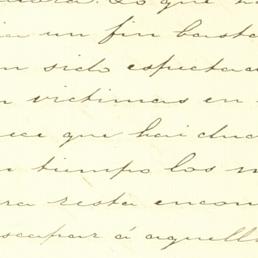 que
un fin basta
sido espectac
victimas en
ece que hai du
tiempo los m
ra resta encon
scapar á aquell